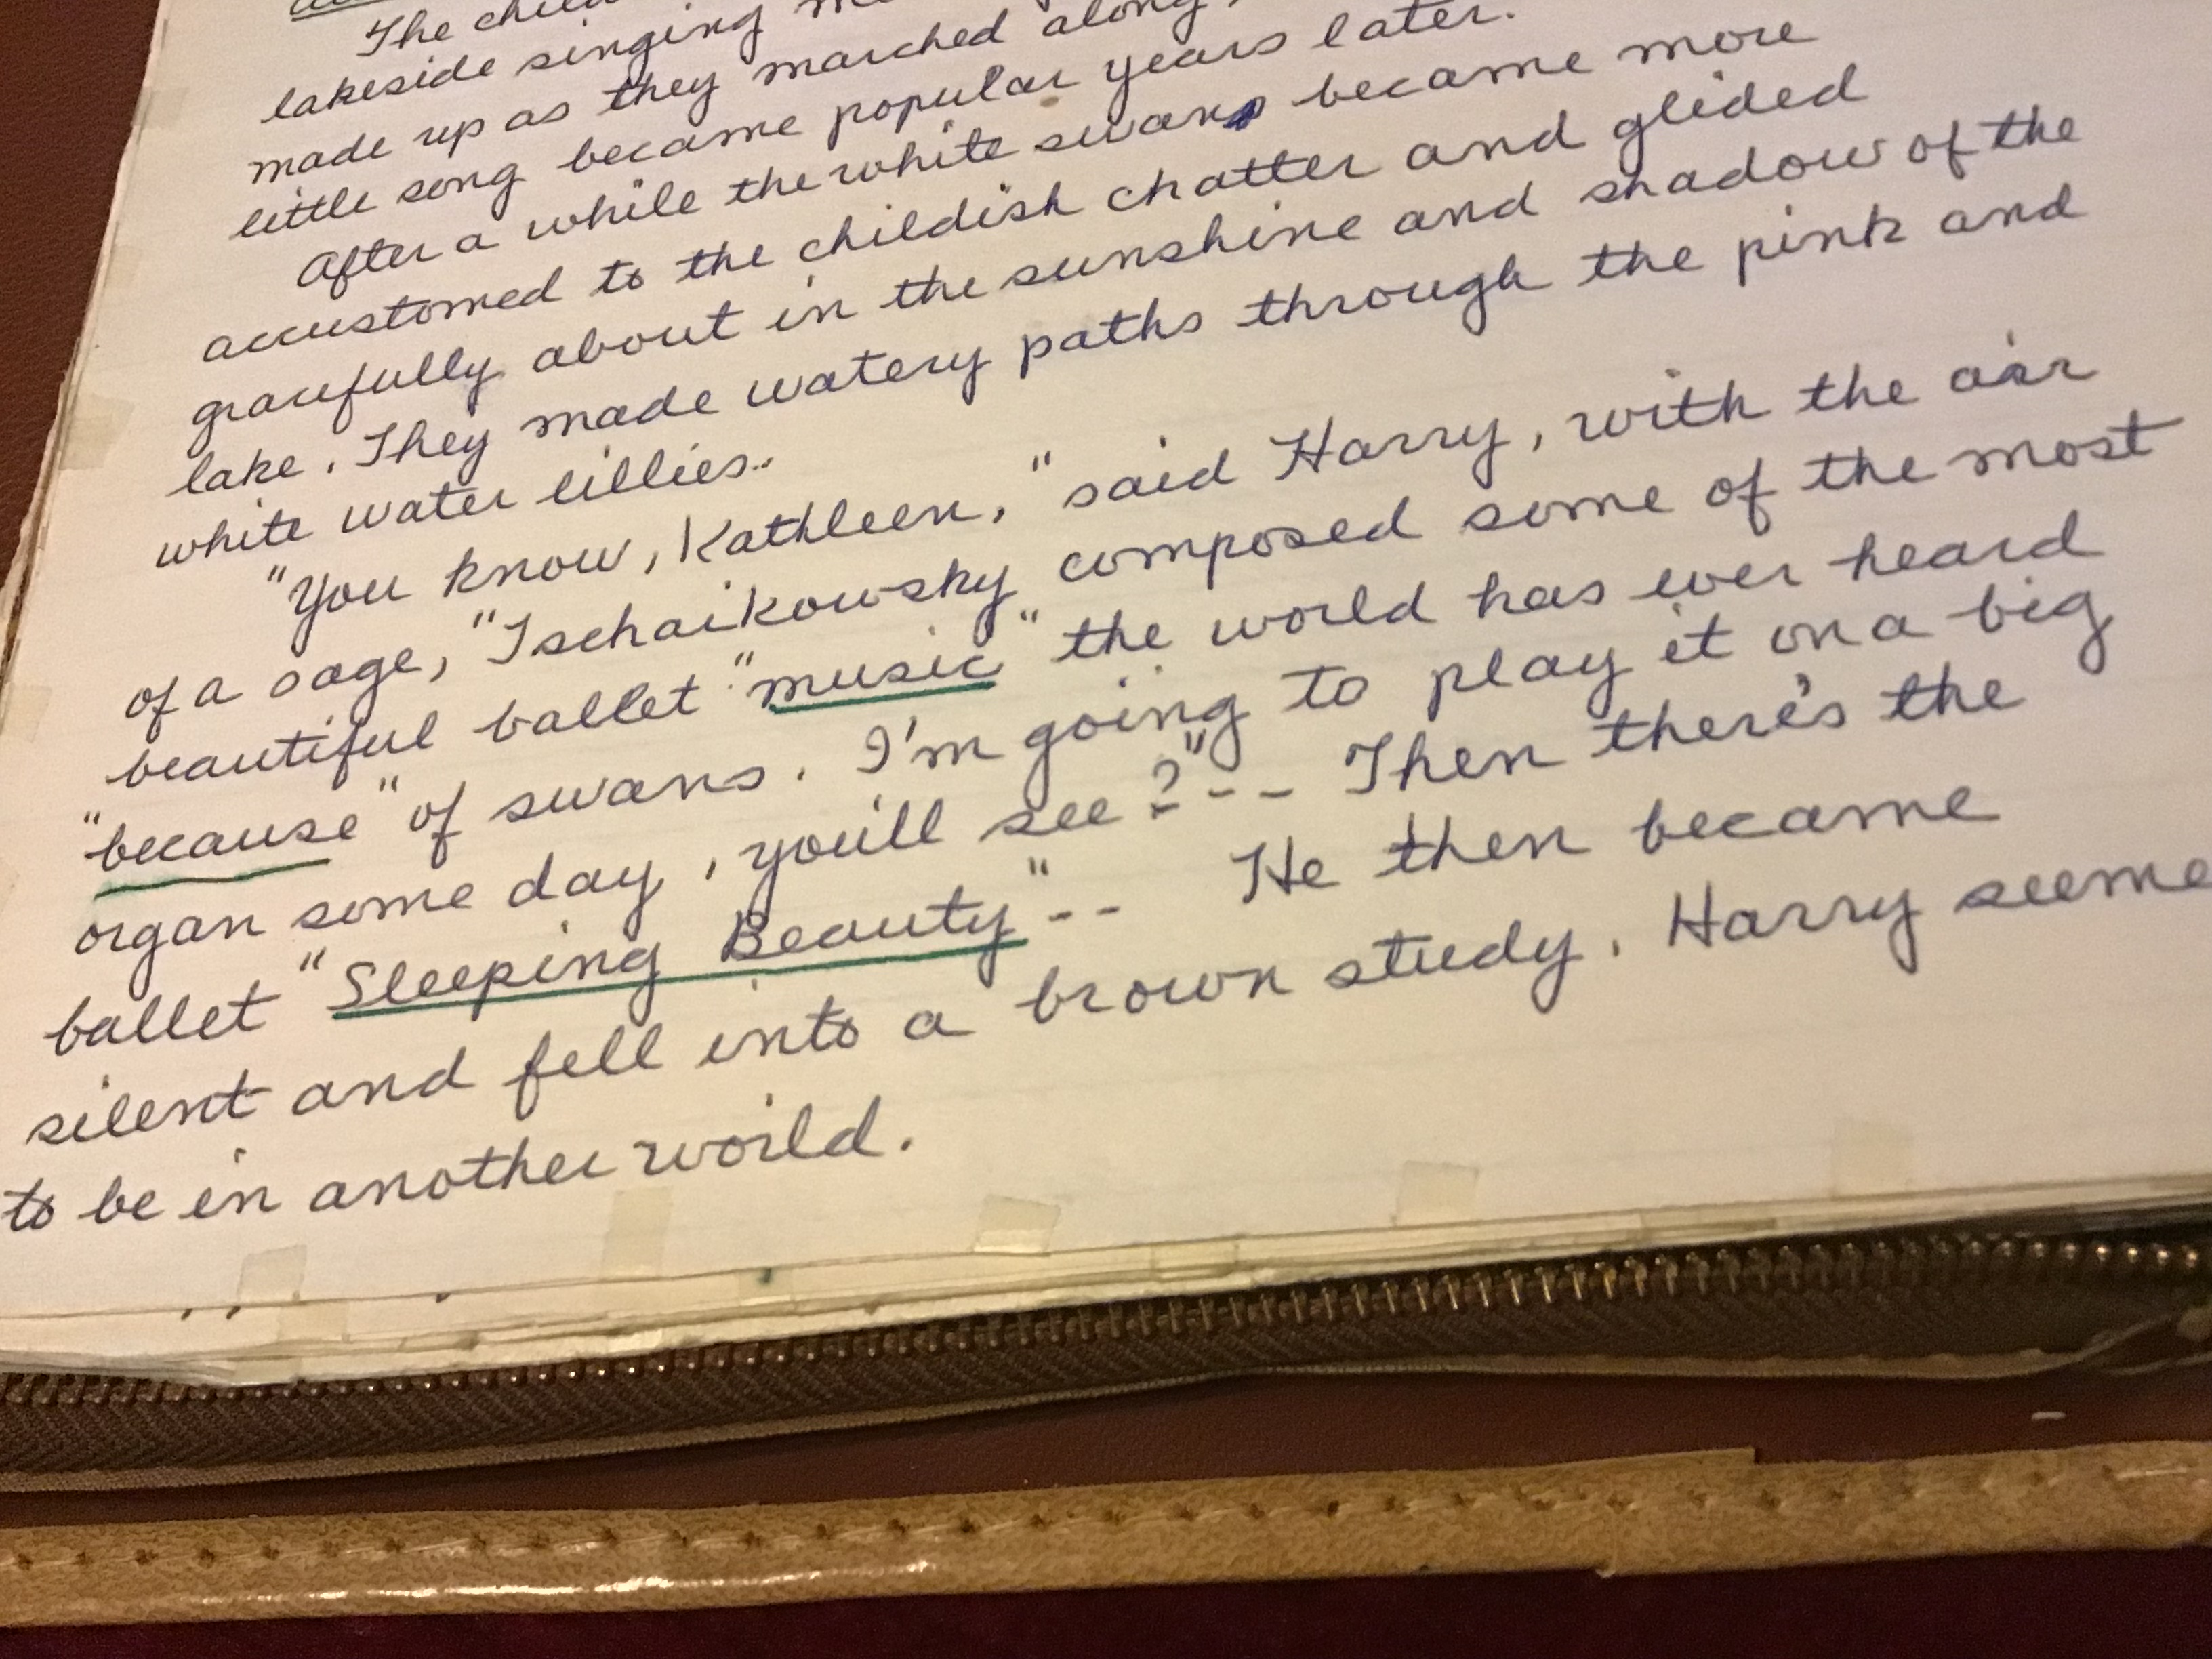 The
lakeside singing
made up as they marched along
little song became popular years later.
After a while the white swans became more
accustomed to the childish chatter and glided
gracefully about in the sunshine and shadow of the
lake. They made watery paths through the pink and
white water lillies..
"You know, Kathleen," said Harry, with the air
of a sage, "Tschaikowsky composed some of the most
beautiful ballet "music" the world has ever heard
"because" of swans. I'm going to play it on a big
organ some day, you'll see?"-- Then there's the
ballet "Sleeping Beauty"-- He then became
silent and fell into a brown study. Harry seeme
to be in another world.